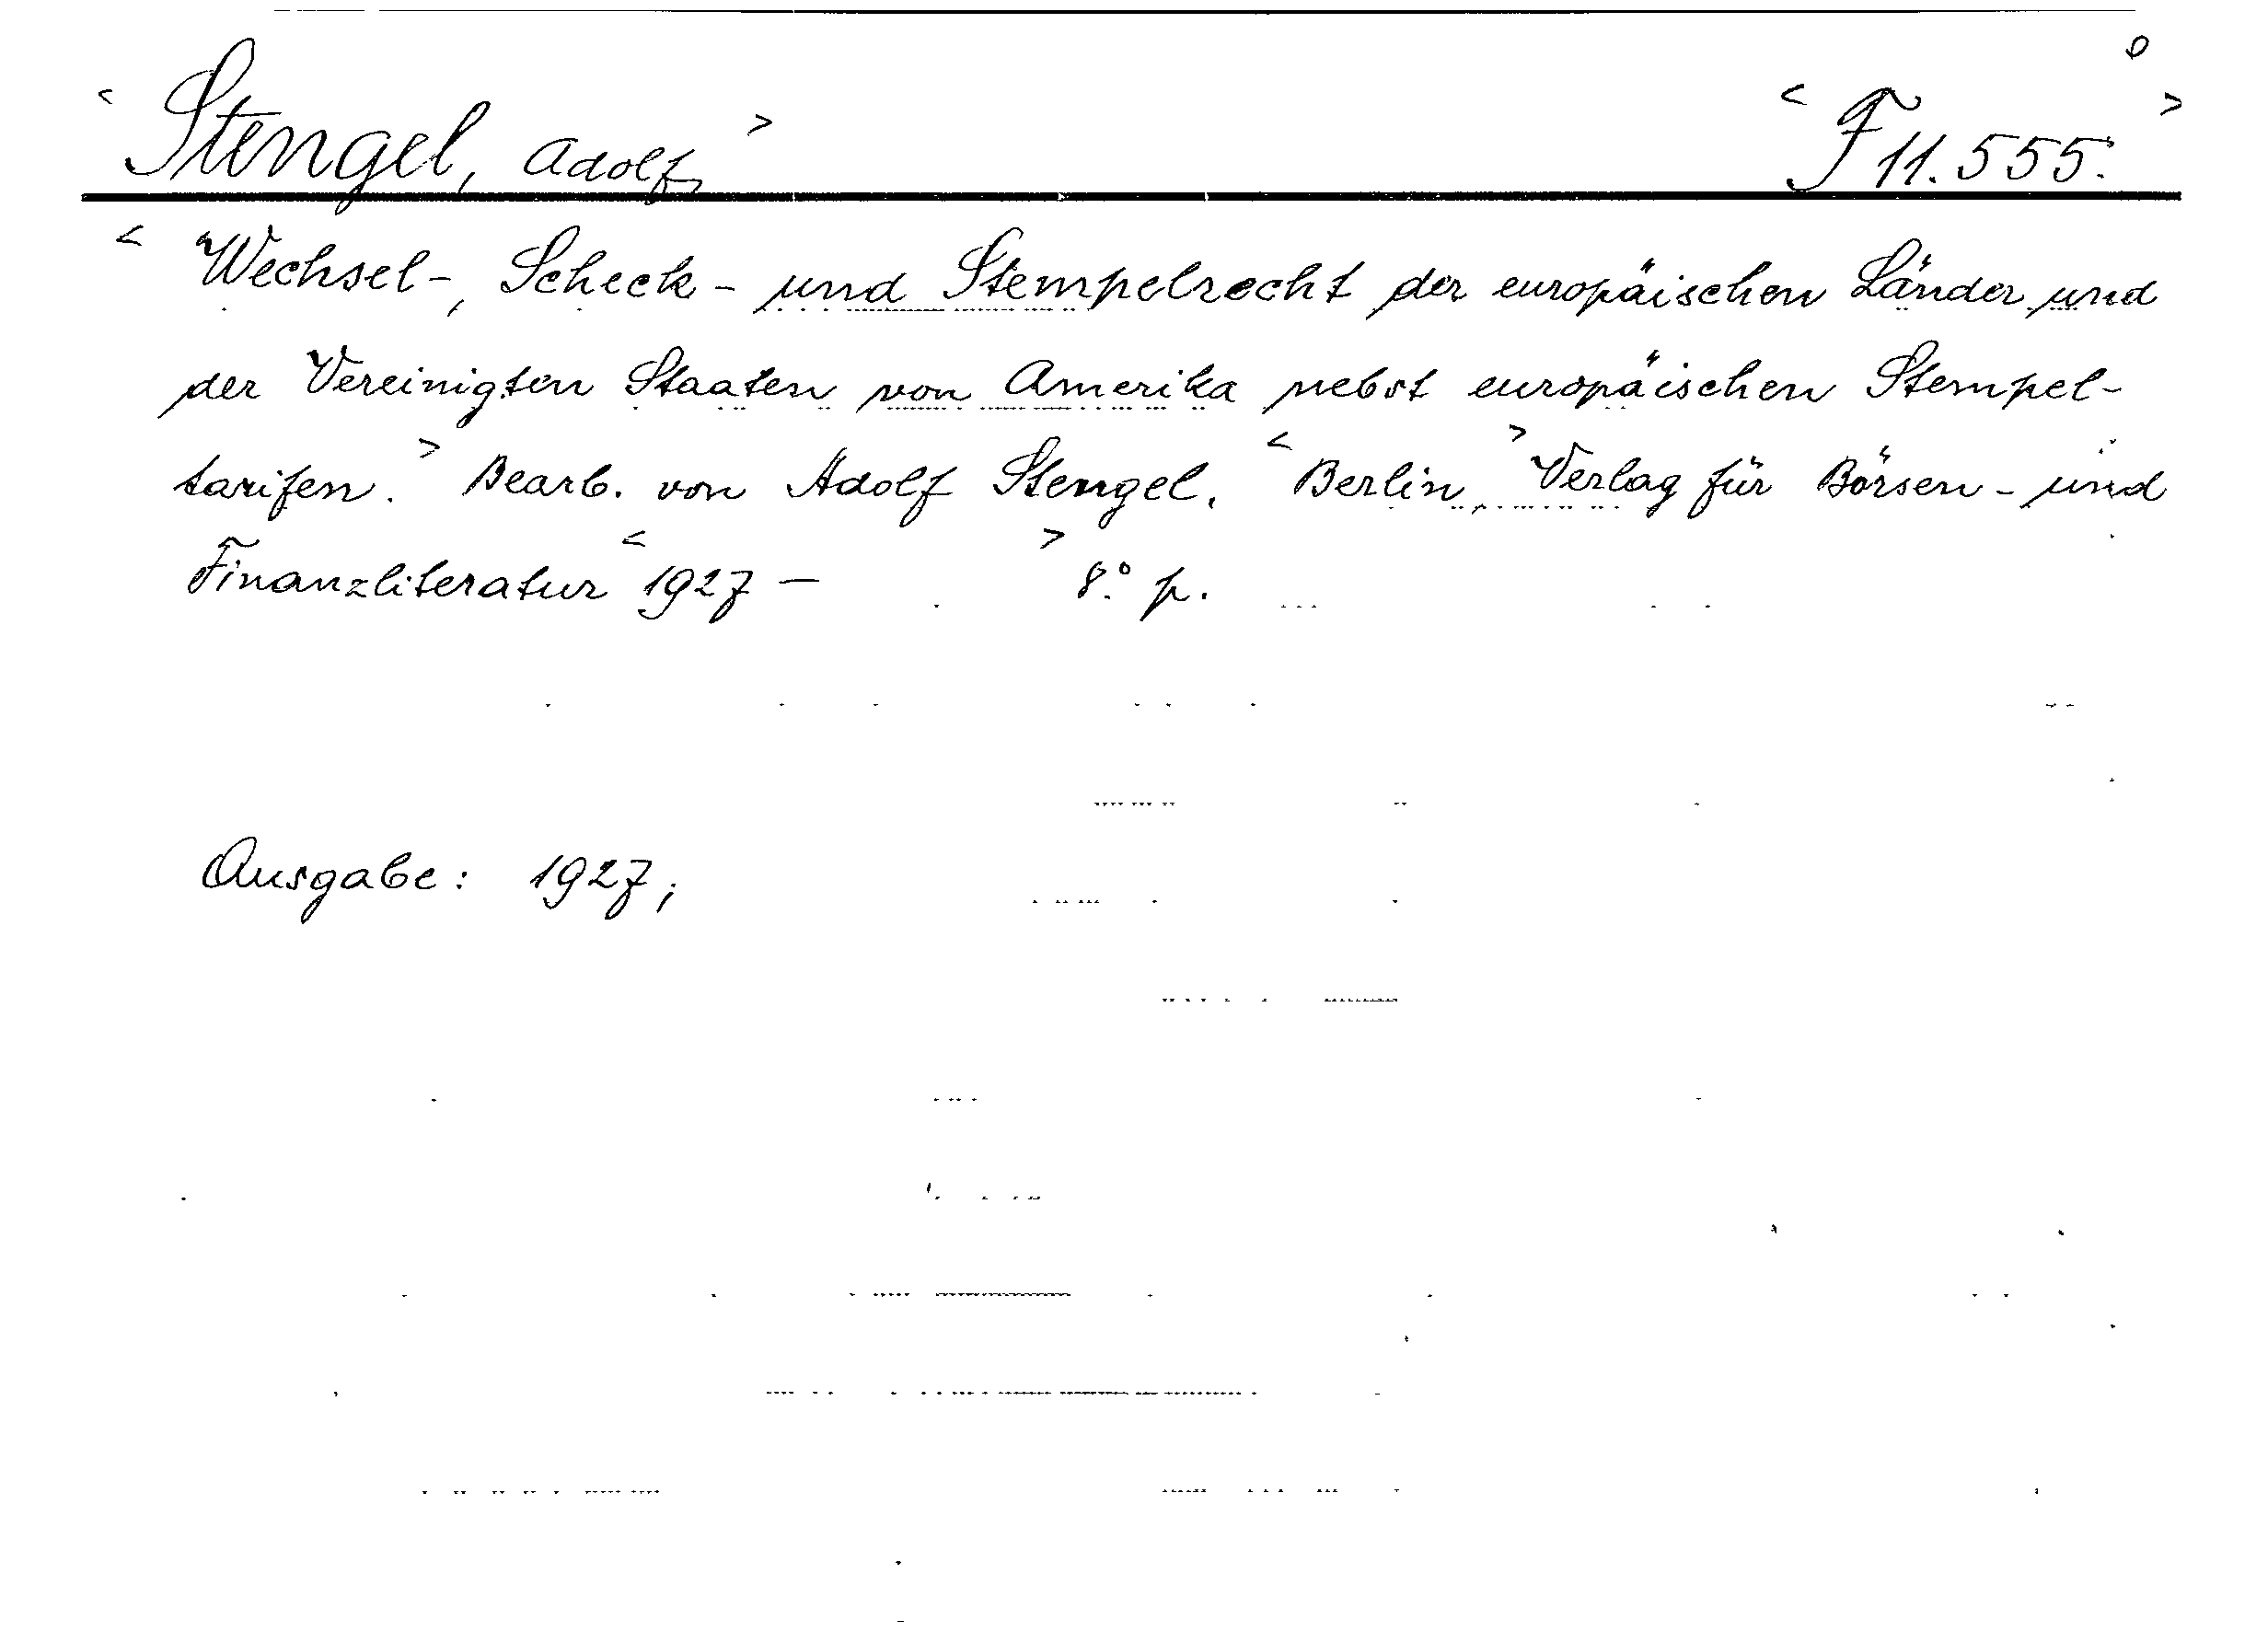 < Stengel, Adolf, > < F 11.555. >
< Wechsel-, Scheck- und Stempelrecht der europäischen Länder und
der Vereinigten Staaten von Amerika nebst europäischen Stempel-
tarifen. > Bearb. von Adolf Stengel. < Berlin, > Verlag für Börsen- und
Finanzliteratur < 1927 — > 8.° p.
Ausgabe: 1927;